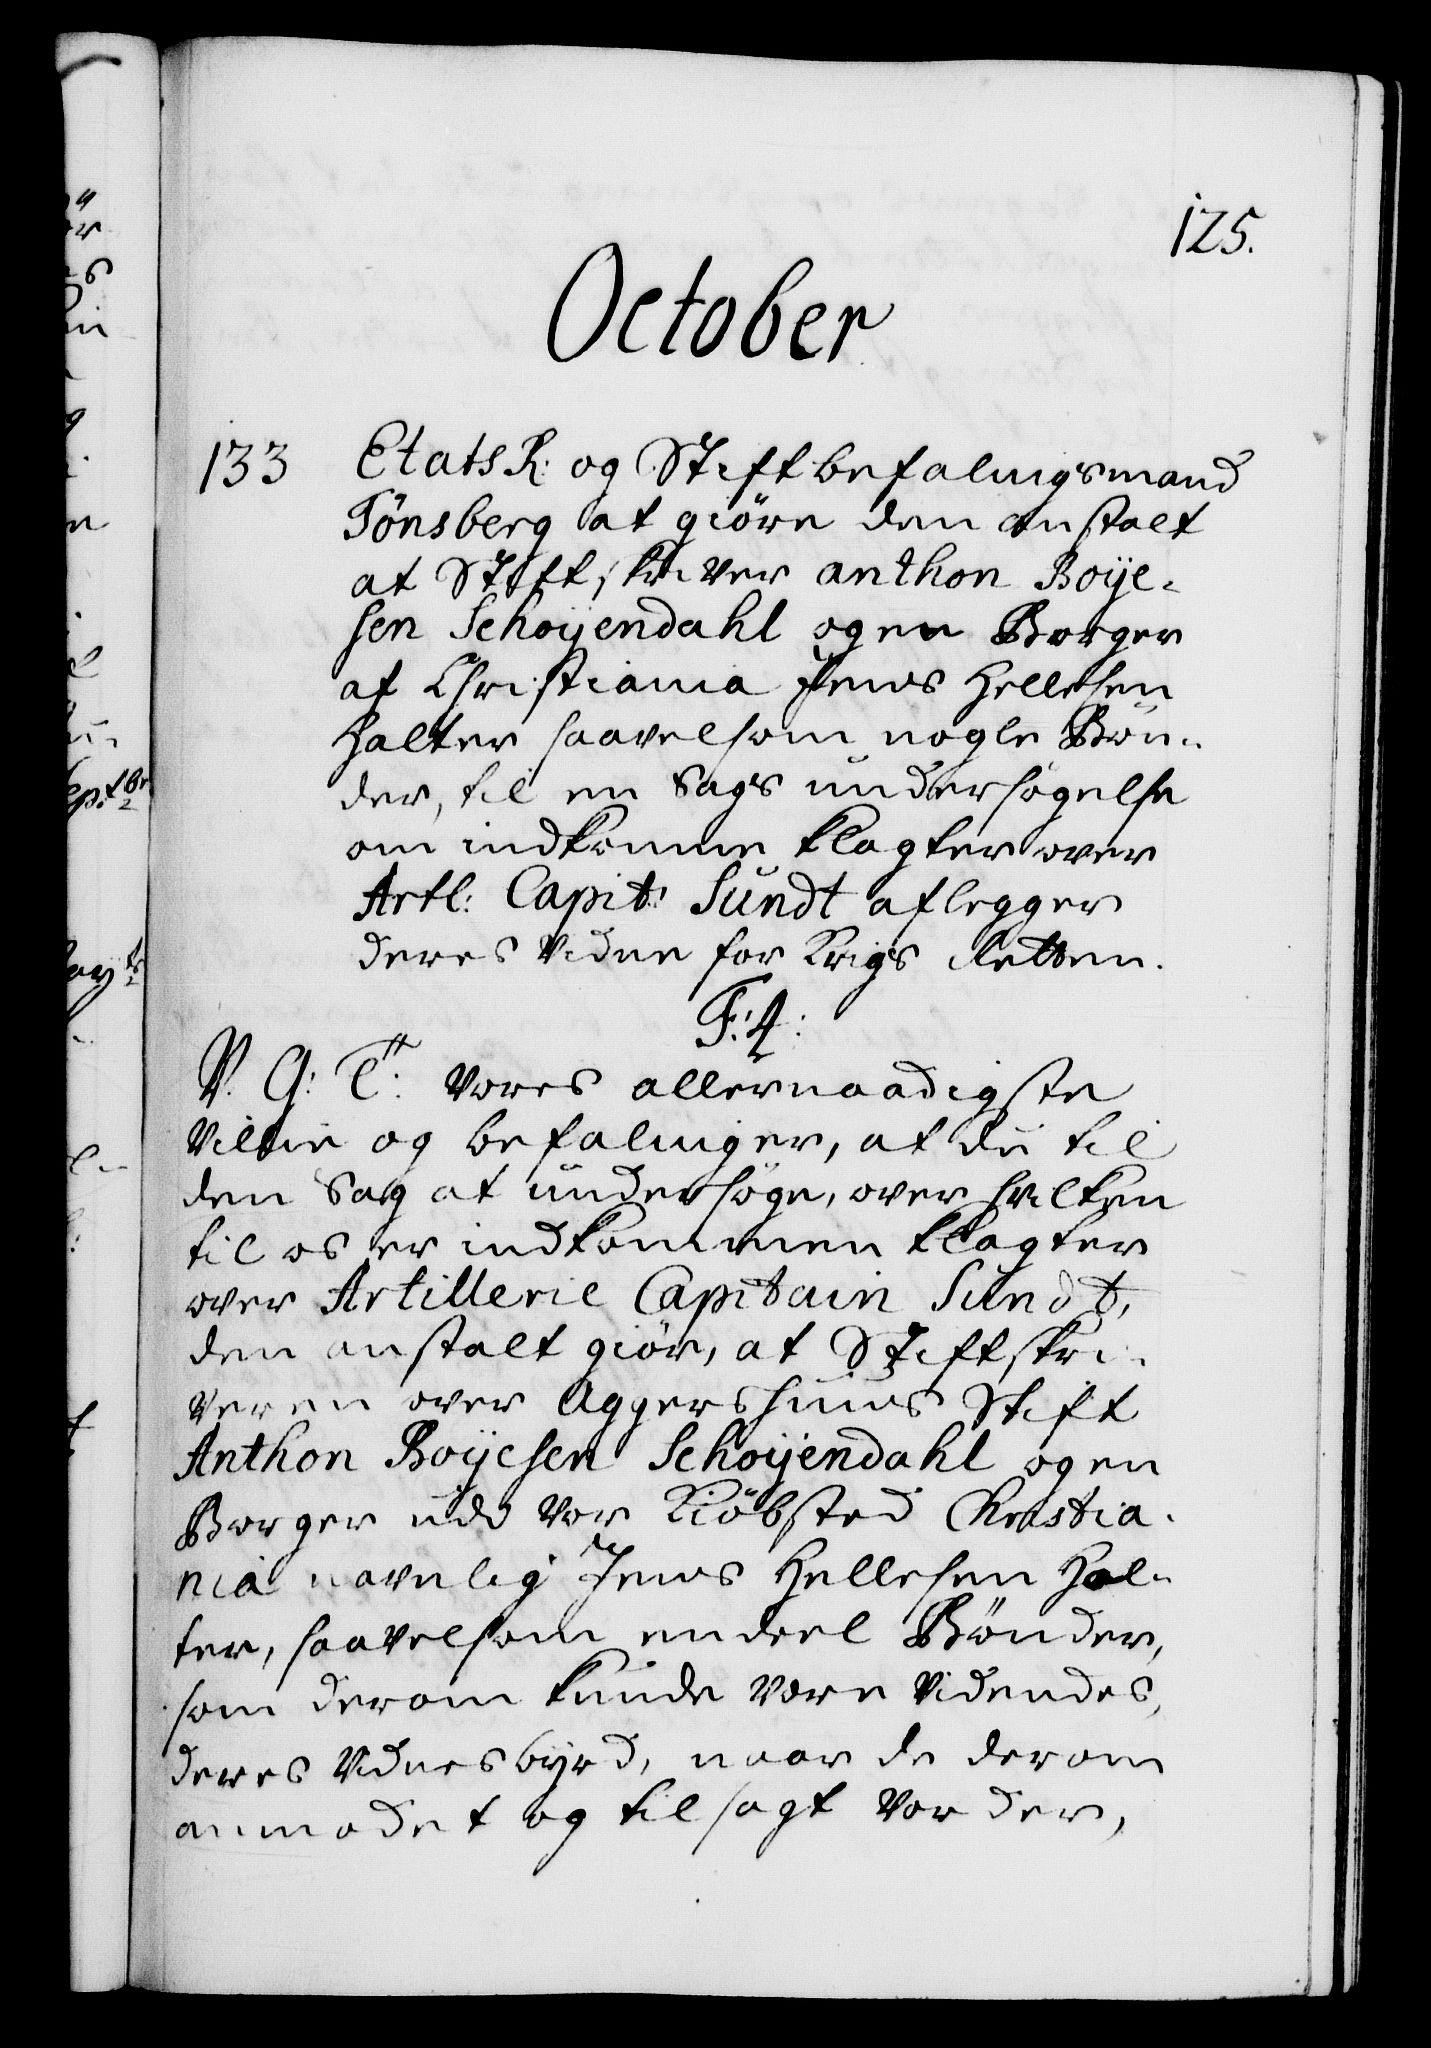 125.
October
133 Etats R: og Stiftbefalingsmand
Tönsberg at giöre den anstalt
at Stiftskriver anthon Boÿe-
sen Schoÿendahl og en Borger
af Christiania Jens Hellesen
Halter saavelsom nogle Bön-
der, til en Sags undersögelse
om indkomne klagter over
Artl: Capit: Sundt aflegger
deres Vidne for Krigs Retten.
F: 4:
V. G: T: Vores allernaadigste
Villie og befalinger, at du til
den Sag at undersöge, over hvilken
til os er indkommen klagter
over Artillerie Capitain Sundt,
den anstalt giör, at Stiftskri-
veren over Aggershuus Stift
Anthon Boÿesen Schoÿendahl og en
Borger udd Vor Kiöbsted Christia-
nia navnlig Jens Hellesen Hal-
ter, saavelsom en deel Bönder,
som derom kunde være Videndes,
deres Vidnesbÿrd, naar de derom
anmodet og tilsagt Vorder,